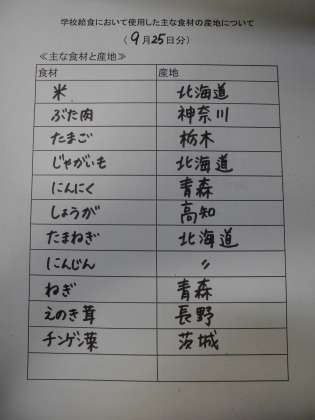 学校給食において使用した主な食材の産地について
(9月25日分)
≪主な食材と産地≫
食材 産地
米 北海道
ぶた肉 神奈川
たまご 栃木
じゃがいも 北海道
にんにく 青森
しょうが 高知
たまねぎ 北海道
にんじん 〃
ねぎ 青森
えのき茸 長野
チンゲン菜 茨城